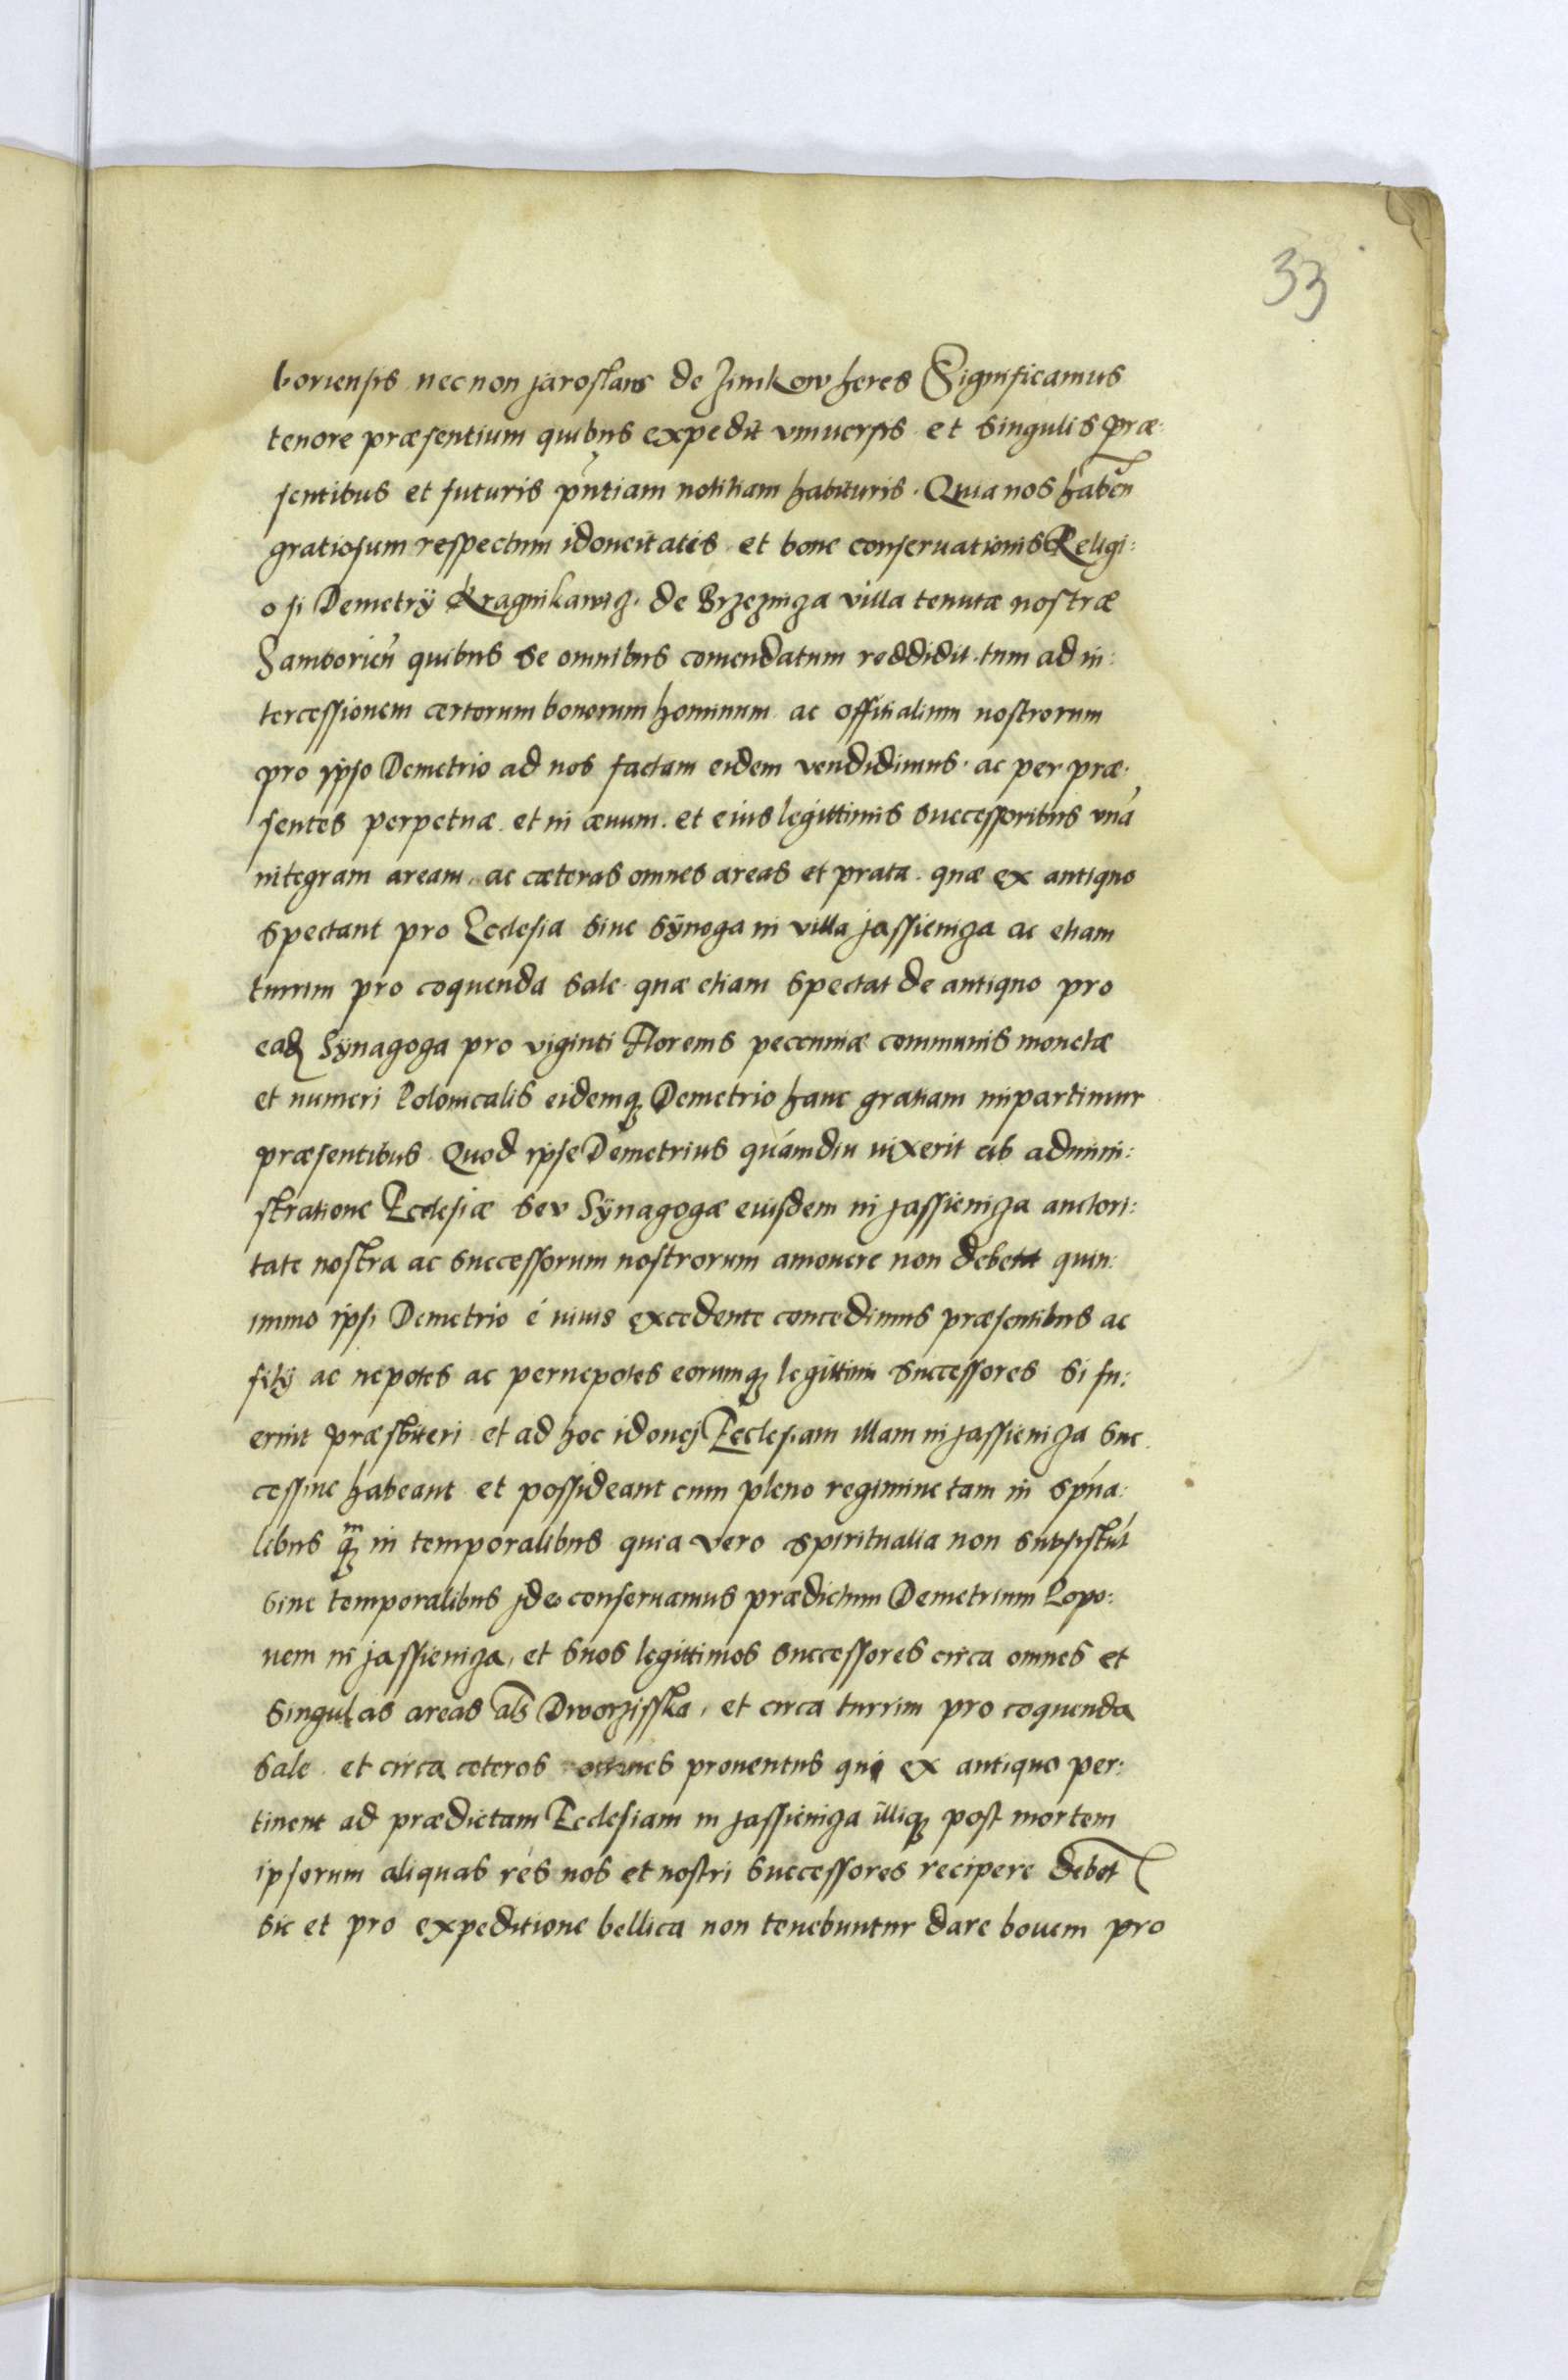 33
boriensis necnon jaroslaus de Zinkow heres Significamus
tenore præsentium quibus expedit vniuersis et singulis præ:
sentibus et futuris pn̄tiam notitiam habituris. Quia nos haben̄
gratiosum respectum idoneitatis et bone conseruationis Religi:
osi Demetrÿ Kragnikawiz. de Brzeziniza villa tenutæ nostræ
Samborien̄ quibus se omnibus comendatum reddidit. tum ad in:
tercessionem certorum bonorum hominum ac offitialium nostrorum
pro ipso Demetrio ad nos factam eidem vendidimus. ac per præ:
sentes perpetuæ et in æuum. et eius legittimis successoribus vnā
integram aream, ac cæteras omnes areas et prata. quæ ex antiquo
spectant pro Ecclesia siue Sÿnoga in villa jassieniza ac etiam
turrim pro coquenda sale quæ etiam spectat de antiquo pro
eadꝫ Sÿnagoga pro viginti Florenis peccuniæ communis monetæ
et numeri Polonicalis eidemqꝫ Demetrio hanc gratiam impartimur
præsentibus Quod ipse Demetrius quámdiu uixerit ab admini:
stratione Ecclesiæ seu Sÿnagogæ eiusdem in jassieniza auctori:
tate nostra ac successorum nostrorum amouere non debent quin:
immo ipsi Demetrio é uiuis excedente concedimus præsentibus ac
filÿ ac nepotes ac pernepotes eorumqꝫ legittimi successores si fu:
erint præsbiteri et ad hoc idonej Ecclesiam illam in jassieniza suc
cessiue habeant et possideant cum pleno regimine tam in spūa:
libus qꝫm in temporalibus quia vero spiritualia non subsistūt
sine temporalibus jdeo conseruamus prædictum Demetrium Popo:
nem in jassieniza, et suos legittimos successores circa omnes et
singulas areas als Dworzisska, et circa turrim pro coquenda
sale et circa ceteros omnes prouentus qui ex antiquo per:
tinent ad prædictam Ecclesiam in jassieniza illiqꝫ post mortem
ipsorum aliquas res nos et nostri successores recipere debet
sic et pro expeditione bellica non tenebuntur dare bouem pro